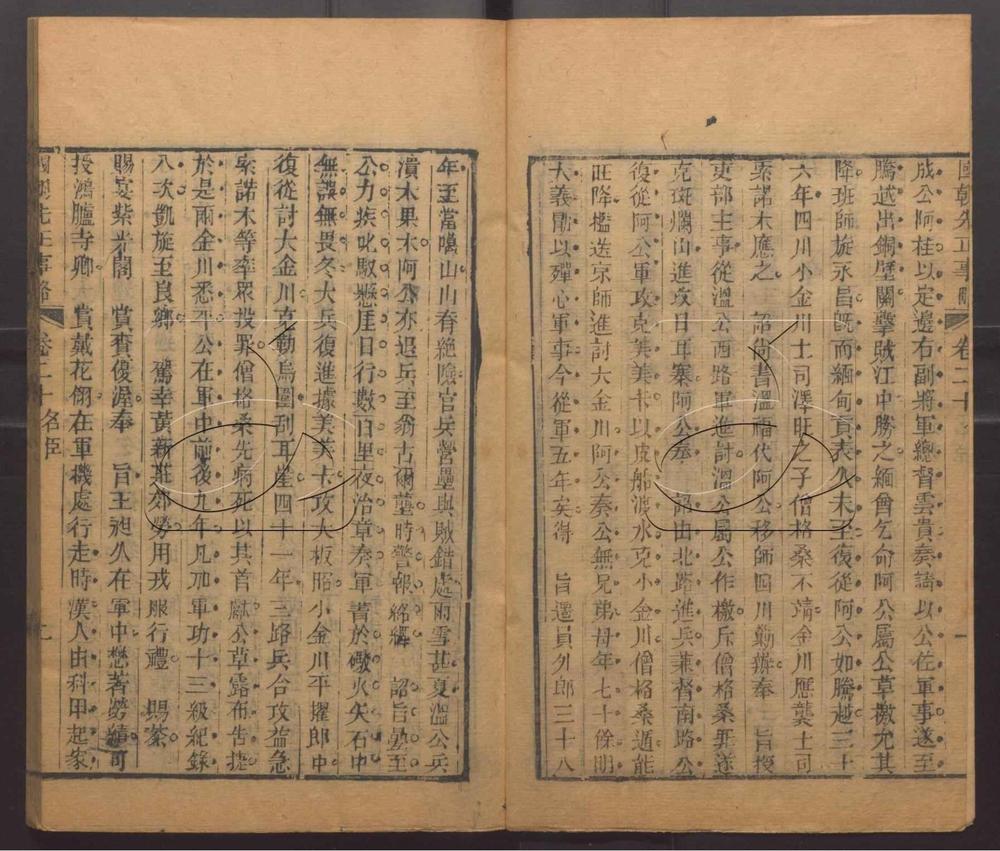 國朝先正事略 卷二十
成公阿桂以定邊右副將軍總督雲貴奏請以公佐軍事遂至
騰越出銅壁關擊賊江中勝之緬酋乞命阿公屬公草檄允其
降班師旋永昌既而緬甸貢表久未至復從阿公如騰越三十
六年四川小金川土司澤旺之子僧格桑不靖金川應襲土司
索諾木應之 詔尚書溫福代阿公移師四川勦辦奉 旨授
吏部主事從溫公西路軍進討溫公屬公作檄斥僧格桑罪遂
克斑斕山進攻日耳寨阿公奉 詔由北路進兵兼督南路公
復從阿公軍攻克美美卡以皮船渡水克小金川僧格桑遁能
旺降檻送京師進討大金川阿公奏公無兄弟母年七十餘明
大義勖以殫心軍事今從軍五年矣得 旨遷員外郎三十八
年至當噶山山脊絕險官兵營壘與賊錯處雨雪甚夏溫公兵
潰木果木阿公亦退兵至翁古爾壟時警報絡繹 詔旨疊至
公力疾叱馭懸厓日行數百里夜治章奏軍書於礮火矢石中
無誤無畏冬大兵復進據美美卡攻大板昭小金川平擢郎中
復從討大金川克勒烏圍刮耳崖四十一年三路兵合攻益急
索諾木等率眾投罪僧格桑先病死以其首獻公草露布告捷
於是兩金川悉平公在軍中前後九年凡加軍功十三級紀錄
八次凱旋至良鄉 駕幸黃新莊郊勞用戎服行禮 賜綮
賜宴紫光閣 賞賚優渥奉 旨王昶久在軍中懋著勞績可
授鴻臚寺卿 賞戴花翎在軍機處行走時漢人由科甲起家
國朝先正事略 卷二十 名臣